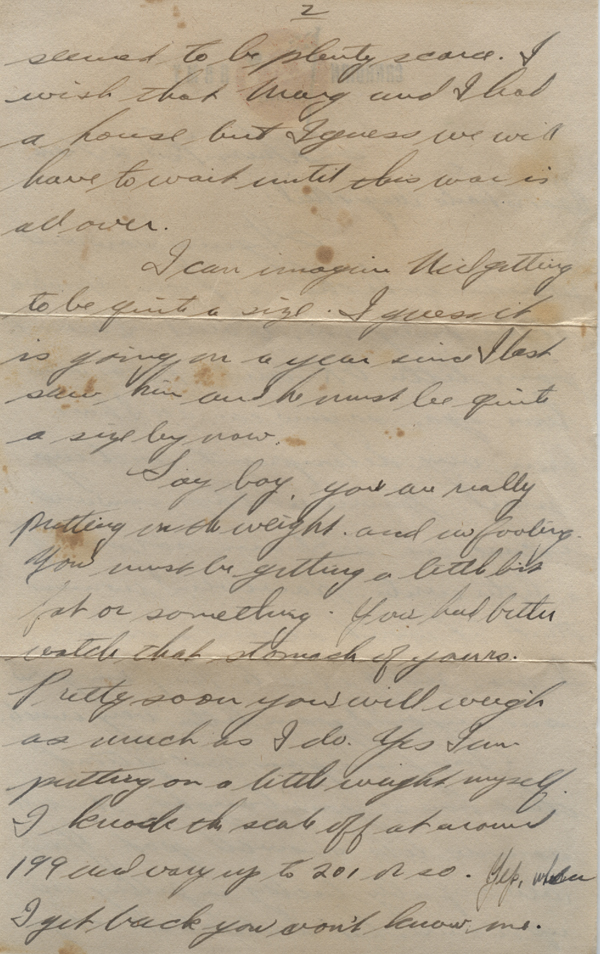 2
seemed to be plenty scarce. I
wish that Marg and I had
a house but I guess we will
have to wait until this war is
all over.
I can imagine getting
to be quite a size. I guess it
is going on a year since I last
saw him and he must be quite
a size by now.
Say boy, you are really
putting on the weight. and no fooling.
You must be getting a little bit
fat or something. You had better
watch that stomach of yours.
Pretty soon you will weigh
as much as I do. Yes I am
putting on a little weight myself.
I knock the scale off at around
199 and vary up to 201 or so. Yep, when
I get back you won't know me.